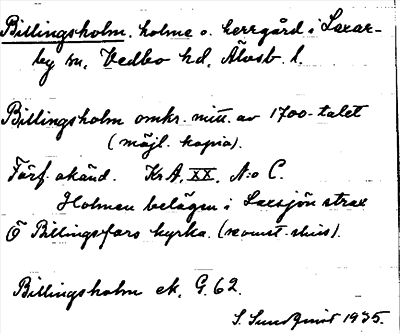 Billingsholm. holme o. herrgård i Laxar-
by sn, Vedbo hd, Älvsb. l.
Billingsholm omkr. mitt. av 1700-talet
(möjl. kopia).
Förf. okänd. Kr A, XX, N:o C.
Holmen belägen i Laxsjön strax
Ö Billingsfors kyrka. (
Billingsholm ek. G. 62.
S. Sundqvist 1935.